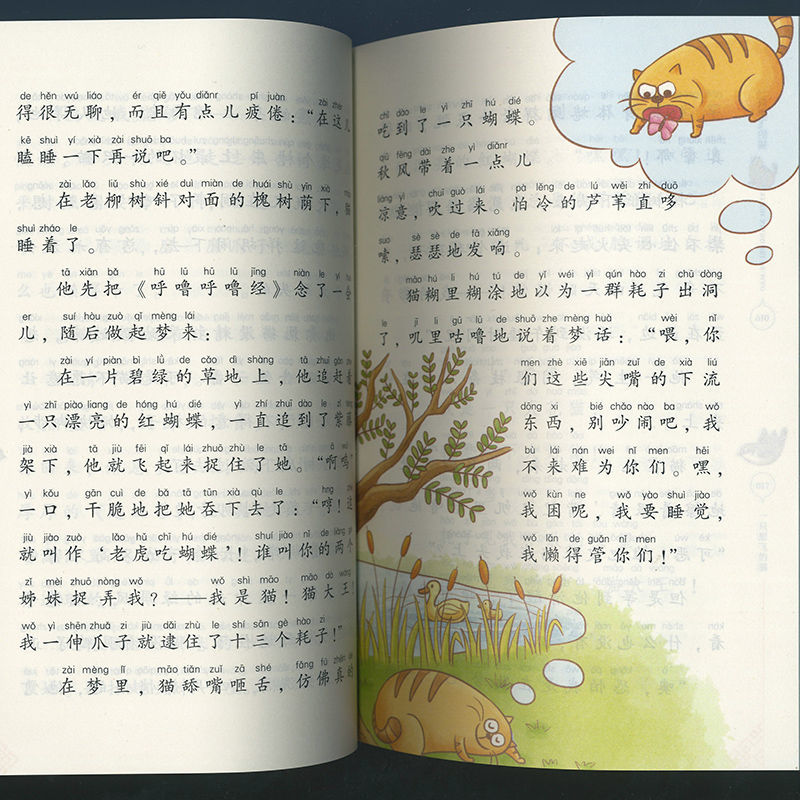 de hěn wú liáo ér qiě yǒu diǎnr pí juàn zài zhèr
得很无聊，而且有点儿疲倦：“在这儿
kē shuì yí xià zài shuō ba
瞌睡一下再说吧。”
zài lǎo liǔ shù xié duì miàn de huái shù yīn xià
在老柳树斜对面的槐树荫下，猫
shuì zháo le
睡着了。
tā xiān bǎ hū lū hū lū jīng niàn le yí
他先把《呼噜呼噜经》念了一会
er suí hòu zuò qǐ mèng lái
儿，随后做起梦来：
zài yí piàn bì lǜ de cǎo dì shàng tā zhuī gǎn
在一片碧绿的草地上，他追赶着
yì zhī piào liang de hóng hú dié yì zhí zhuī dào le zǐ
一只漂亮的红蝴蝶，一直追到了紫藤
jià xià tā jiù fēi qǐ lái zhuō zhù le tā ā wū
架下，他就飞起来捉住了她。“啊呜
yì kǒu gān cuì de bǎ tā tūn xià qù le hng
一口，干脆地把她吞下去了：“哼！这
jiù jiào zuò lǎo hǔ chī hú dié shuí jiào nǐ de liǎng
就叫作‘老虎吃蝴蝶’！谁叫你的两个
zǐ mèi zhuō nòng wǒ wǒ shì māo māo dà wáng
姊妹捉弄我？——我是猫！猫大王！
wǒ yì shēn zhuǎ zi jiù dǎi zhù le shí sān gè hào zi
我一伸爪子就逮住了十三个耗子！”
zài mèng lǐ māo tiǎn zuǐ zā shé fǎng fú zhēn de
在梦里，猫舔嘴咂舌，仿佛真的
chī dào le yì zhī hú dié
吃到了一只蝴蝶。
qiū fēng dài zhe yì diǎnr
秋风带着一点儿
liáng yì chuī guò lái pà lěng de lú wěi zhí duō
凉意，吹过来。怕冷的芦苇直哆
suo sè sè de fā xiǎng
嗦，瑟瑟地发响。
māo hú li hú tú de yǐ wéi yì qún hào zi chū dòng
猫糊里糊涂地以为一群耗子出洞
le jī li gū lū de shuō zhe mèng huà wèi nǐ
了，叽里咕噜地说着梦话：“喂，你
men zhè xiē jiān zuǐ de xià liú
们这些尖嘴的下流
dōng xi bié chǎo nào ba wǒ
东西，别吵闹吧，我
bù lái nán wei nǐ men hēi
不来难为你们。嘿，
wǒ kùn ne wǒ yào shuì jiào
我困呢，我要睡觉，
wǒ lǎn de guǎn nǐ men
我懒得管你们！”